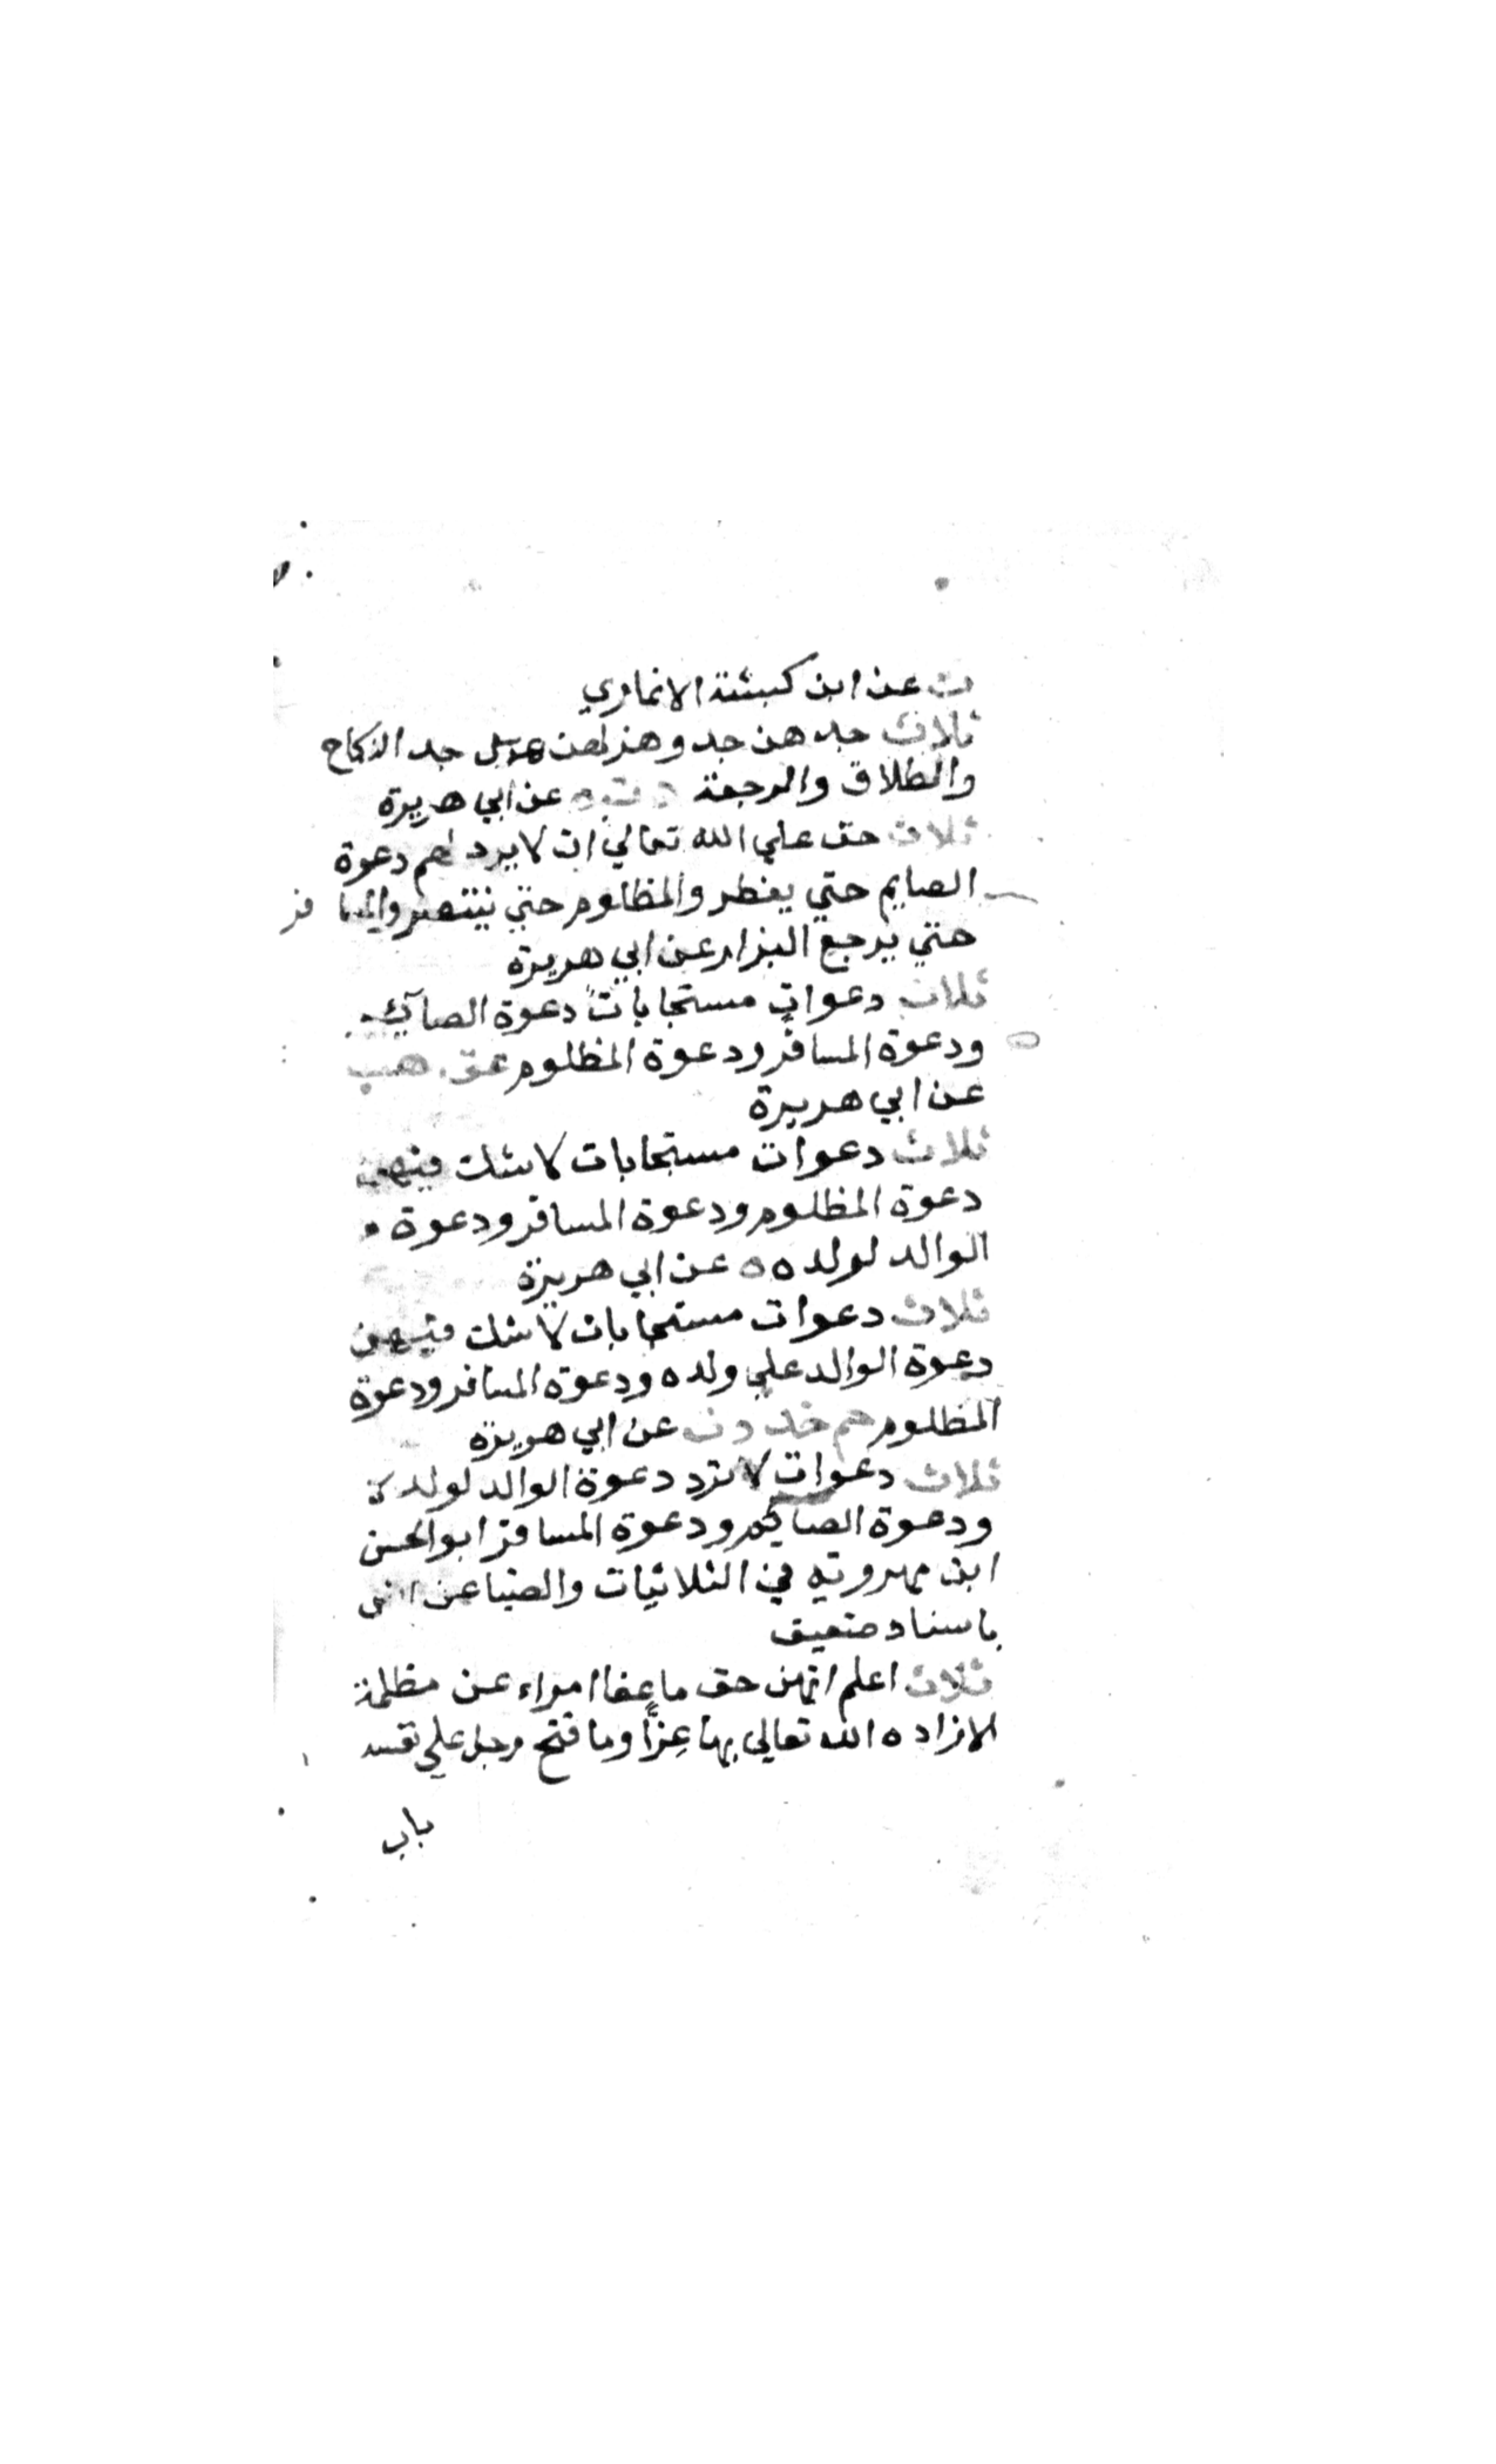 ت عن ابن كبشة الانماري
ثلاث جد هن جد وهزلهن جد النكاح
والطلاق والرجعة د ت ه عن ابي هريرة
ثلاث حق علي الله تعالي ان لا يرد لهم دعوة
الصايم حتي يفطر والمظلوم حتي ينتصر والمسافر
حتي يرجع البزار عن ابي هريرة
ثلاث دعوات مستجابات دعوة الصائم
ودعوة المسافر ودعوة المظلوم عق هب
عن ابي هريرة
ثلاث دعوات مستجابات لا شك فيهن
دعوة المظلوم ودعوة المسافر ودعوة
الوالد لولده ه عن ابي هريرة
ثلاث دعوات مستجابات لا شك فيهن
دعوة الوالد علي ولده ودعوة المسافر ودعوة
المظلوم حم خد د ت عن ابي هريرة
ثلاث دعوات لا ترد دعوة الوالد لولده
ودعوة الصائم ودعوة المسافر ابو الحسن
ابن مهرويه في الثلاثيات والضيا عن انس
باسناد ضعيف
ثلاث اعلم انهن حق ما عفا امراء عن مظلمة
الا زاده الله تعالي بها عِزًّا وما فتح رجل علي نفسه
باب